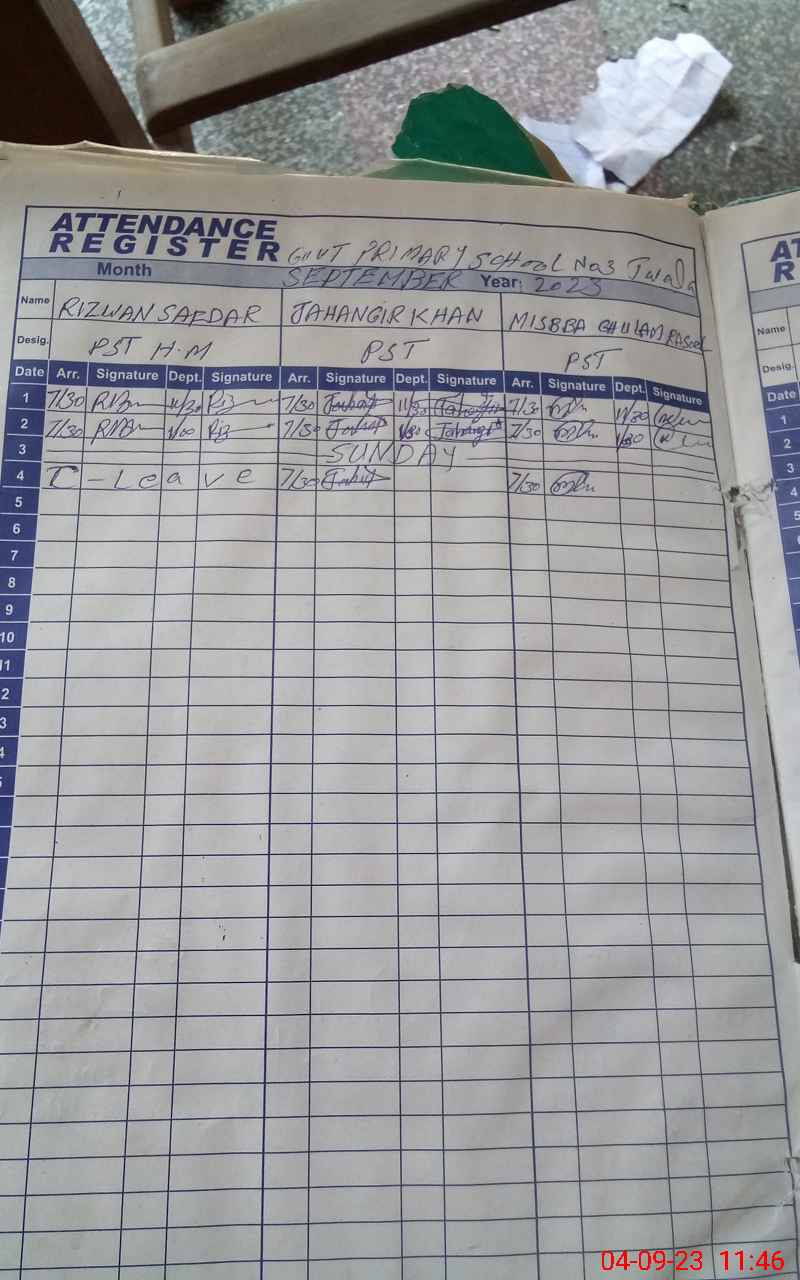 ATTENDANCE
REGISTER
GOVT PRIMARY SCHOOL No3
Month SEPTEMBER Year: 2023
Name RIZWAN SAFDAR JAHANGIR KHAN MISBBA GHULAM RASOOL
Desig. PST H.M PST PST
Date Arr. Signature Dept. Signature Arr. Signature Dept. Signature Arr. Signature Dept. Signature
1 7/30 11/30 7/30 11/30 7/30 11/30
2 7/30 7/30 7/30 1/30
3 SUNDAY
4 C-Leave 7/30 7/30
5
6
7
8
9
10
11
2
3
4
5
AT
R
Name
Desig.
Date
1
2
3
4
5
04-09-23 11:46